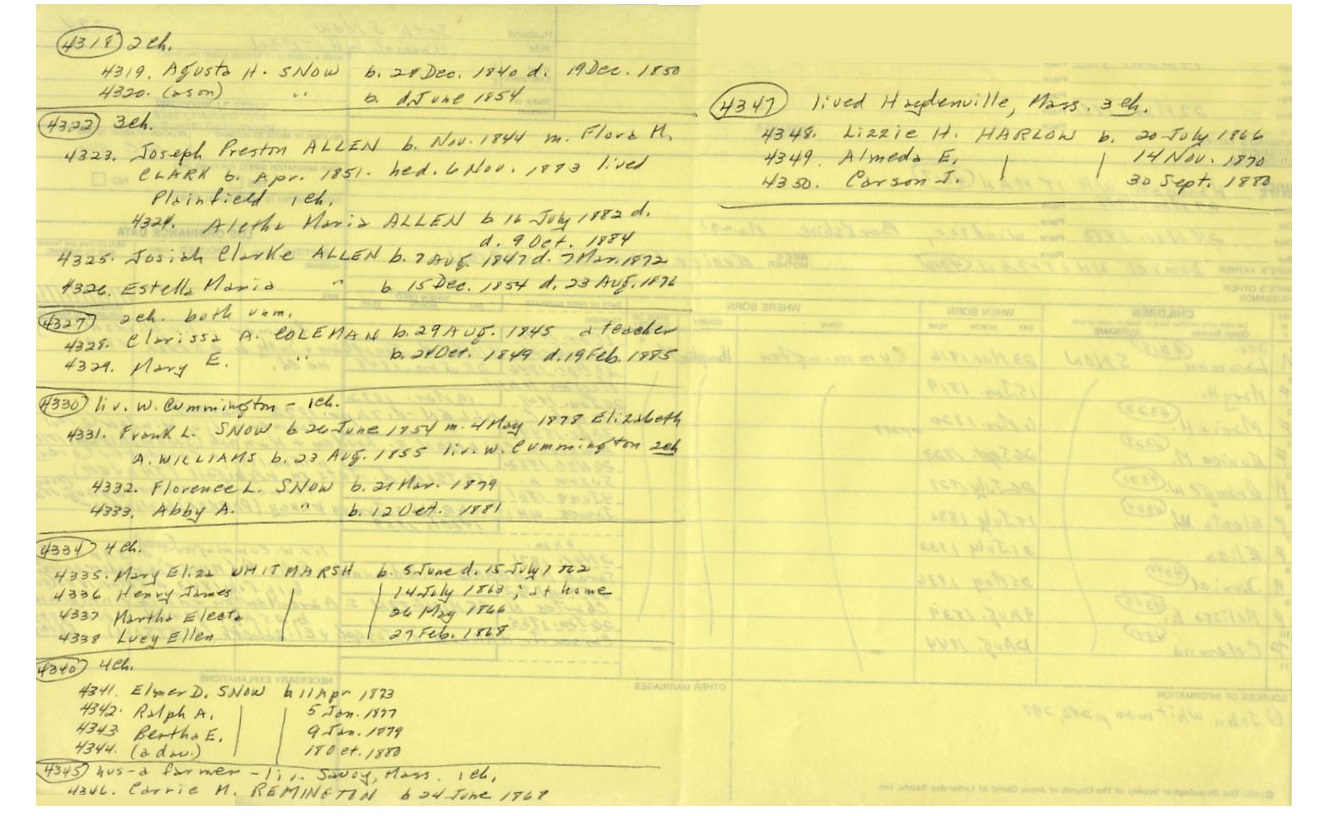 4318 2ch.
4319. Agusta H. SNOW b. 28 Dec. 1840 d. 19 Dec. 1850
4320. (a son) " b. d. June 1854
4322 3ch.
4323. Joseph Preston ALLEN b. Nov. 1844 m. Flora M.
CLARK b. Apr. 1851. hed. 6 Nov. 1883 lived
Plainfield 1ch.
4324. Aletha Maria ALLEN b 16 July 1882 d.
d. 9 Oct. 1884
4325. Josiah Clarke ALLEN b. 7 Aug. 1847 d. 7 Mar. 1872
4326. Estella Maria " b 15 Dec. 1854 d. 23 Aug. 1876
4327 2ch. both unm.
4328. Clarissa A. COLEMAN b. 29 AUG. 1845 a teacher
4329. Mary E. " b. 2 Oct. 1849 d. 19 Feb. 1885
4330 liv. W. Cummington - 1ch.
4331. Frank L. SNOW b 26 June 1854 m. 4 May 1878 Elizabeth
A. WILLIAMS b. 23 Aug. 1855 liv. W. Cummington 2ch
4332. Florence L. SNOW b. 21 Mar. 1879
4333. Abby A. " b. 12 Oct. 1881
4334 4ch.
4335. Mary Eliza WHITMARSH b. 5 June d. 15 July 1862
4336 Henry James 14 July 1863; at home
4337 Martha Electa 26 May 1866
4338 Lucy Ellen 27 Feb. 1868
4340 4ch.
4341. Elmer D. SNOW b 11 Apr 1873
4342. Ralph A. 5 Jan. 1877
4343 Bertha E. 9 Jan. 1879
4344. (a dau.) 18 Oct. 1880
4345 hus-a farmer - liv. Savoy, Mass. 1ch.
4346. Carrie M. REMINGTON b 24 June 1868
4347 lived Haydenville, Mass. 3ch.
4348. Lizzie H. HARLOW b. 20 July 1866
4349. Almeda E. 14 Nov. 1870
4350. Carson J. 30 Sept. 1880